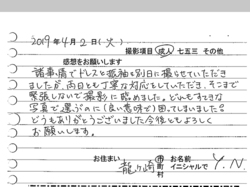 2019年4月2日(火)
撮影項目 成人 七五三 その他
感想をお願いします
諸事情でドレスと振袖を別日に撮らせていただき
ましたが、両日とも丁寧な対応をしていただき、そこまで
緊張しないで撮影に臨めました。どれもすてきな
写真で選ぶのに(良い意味で)困ってしまいました。
どうもありがとうございました。今後ともよろしく
お願いします。
お住まい 龍ヶ崎 市町村 お名前 イニシャルで Y.N.